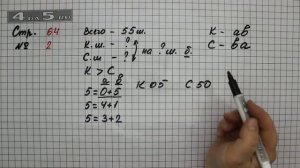 4 да 5.ru
Стр. 64
№ 2
Всего - 55 ш.
К.ш. - ?
С.ш - ?
на ? ш. б.
К > С
а в
5 = 0+5
5 = 4+1
5 = 3+2
К 05 С 50
К - ав
С - ва